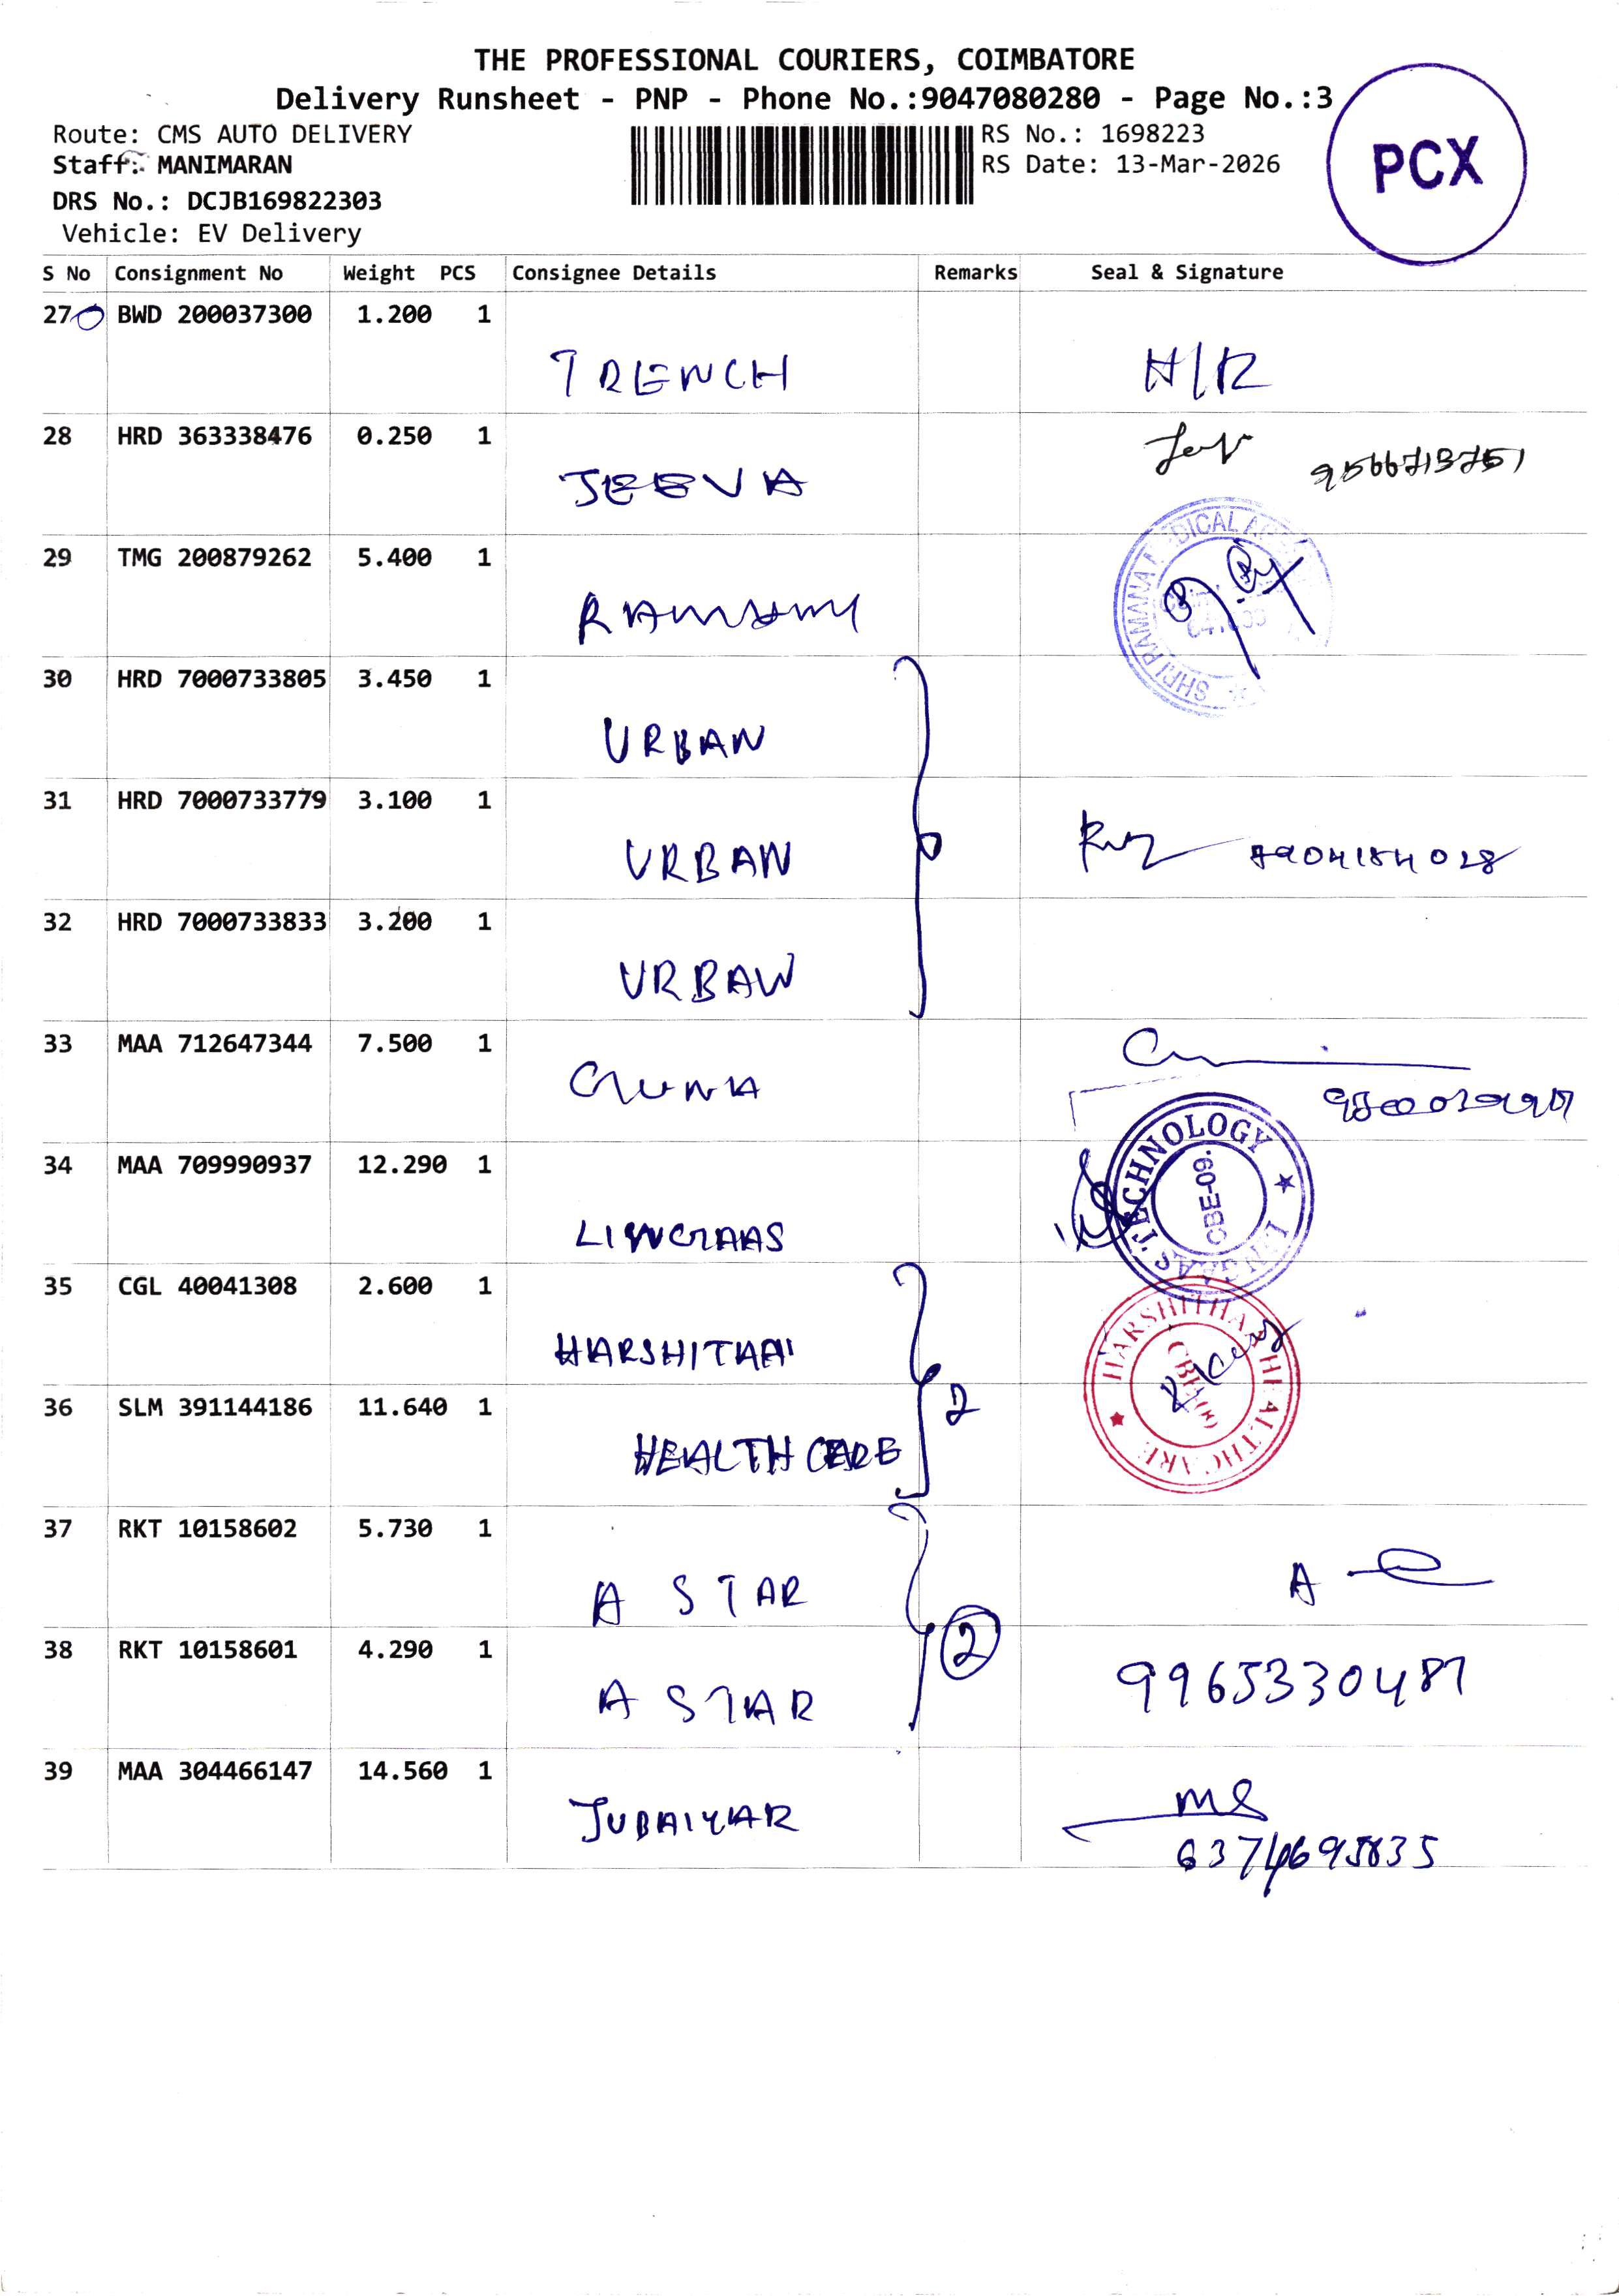 THE PROFESSIONAL COURIERS, COIMBATORE
Delivery Runsheet - PNP - Phone No.:9047080280 - Page No.:3
PCX
Route: CMS AUTO DELIVERY
RS No.: 1698223
Staff: MANIMARAN
RS Date: 13-Mar-2026
DRS No.: DCJB169822303
Vehicle: EV Delivery
S No Consignment No Weight PCS Consignee Details Remarks Seal & Signature
27 BWD 200037300 1.200 1
TRENCH
28 HRD 363338476 0.250 1
JEEVA
29 TMG 200879262 5.400 1
SHRI RAMANA MEDICAL
30 HRD 7000733805 3.450 1
URBAN
31 HRD 7000733779 3.100 1
URBAN
32 HRD 7000733833 3.200 1
URBAN
33 MAA 712647344 7.500 1
34 MAA 709990937 12.290 1
LINGAAS
LINGAAS TECHNOLOGY
CBE-09.
35 CGL 40041308 2.600 1
HARSHITHA
HARSHITHA HEALTHCARE
36 SLM 391144186 11.640 1
2
HEALTH CARE
37 RKT 10158602 5.730 1
A STAR
38 RKT 10158601 4.290 1
2
A STAR
9965330487
39 MAA 304466147 14.560 1
JUBAIYAR